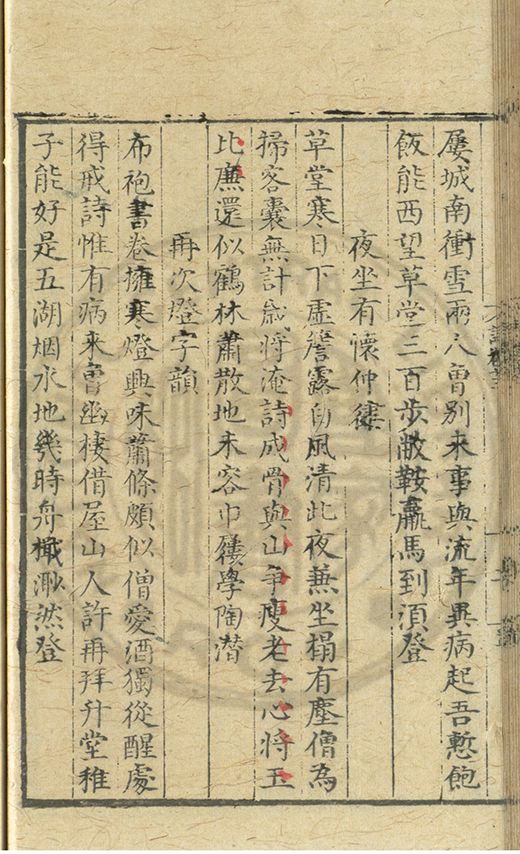 屢城南衝雪兩人曾別来事與流年異病起吾慙飽
飯能西望草堂三百步敝鞍羸馬到須登
夜坐有懷仲
草堂寒日下虚簷露白風清此夜蒹坐榻有塵僧為
掃客囊無計歲將淹詩成骨與山争瘦老去心将玉
比廉還似鶴林蕭散地未容巾屨學陶潛
再次燈字韻
布袍書卷擁寒燈興味蕭條頗似僧愛酒獨從醒處
得戒詩惟有病来曾幽棲借屋山人許再拜升堂稚
子能好是五湖烟水地幾時舟檝渺然登